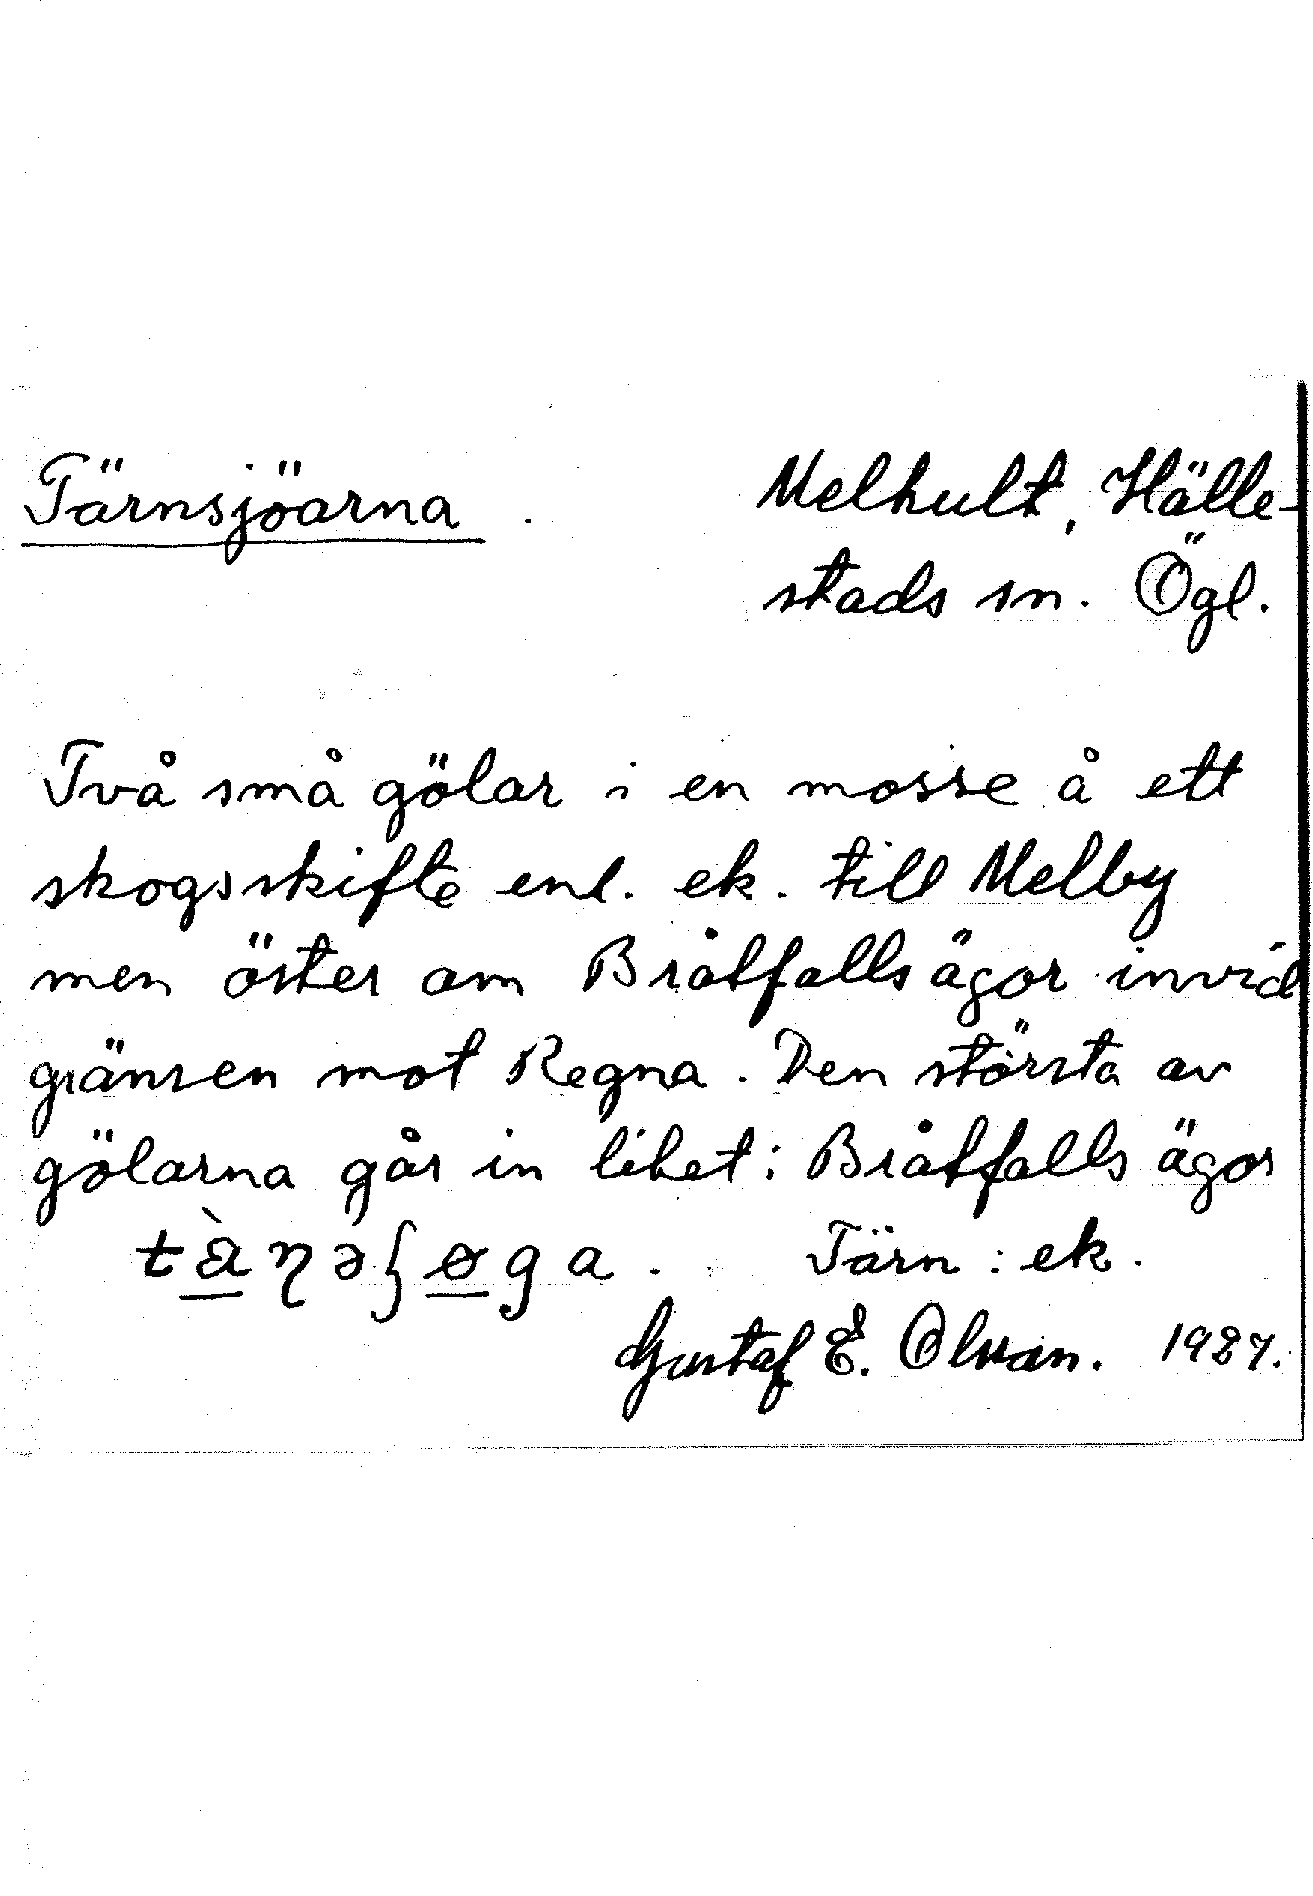 Tärnsjöarna. Melhult, Hälle-
stads sn. Ögl.
Två små gölar i en mosse å ett
skogsskifte enl. ek. till Melby
men öster om Bråtfallsägor invid
gränsen mot Regna. Den största av
gölarna går in litet i Bråtfalls ägor
Tärn: ek.
Gustaf E. Olsson. 1927.